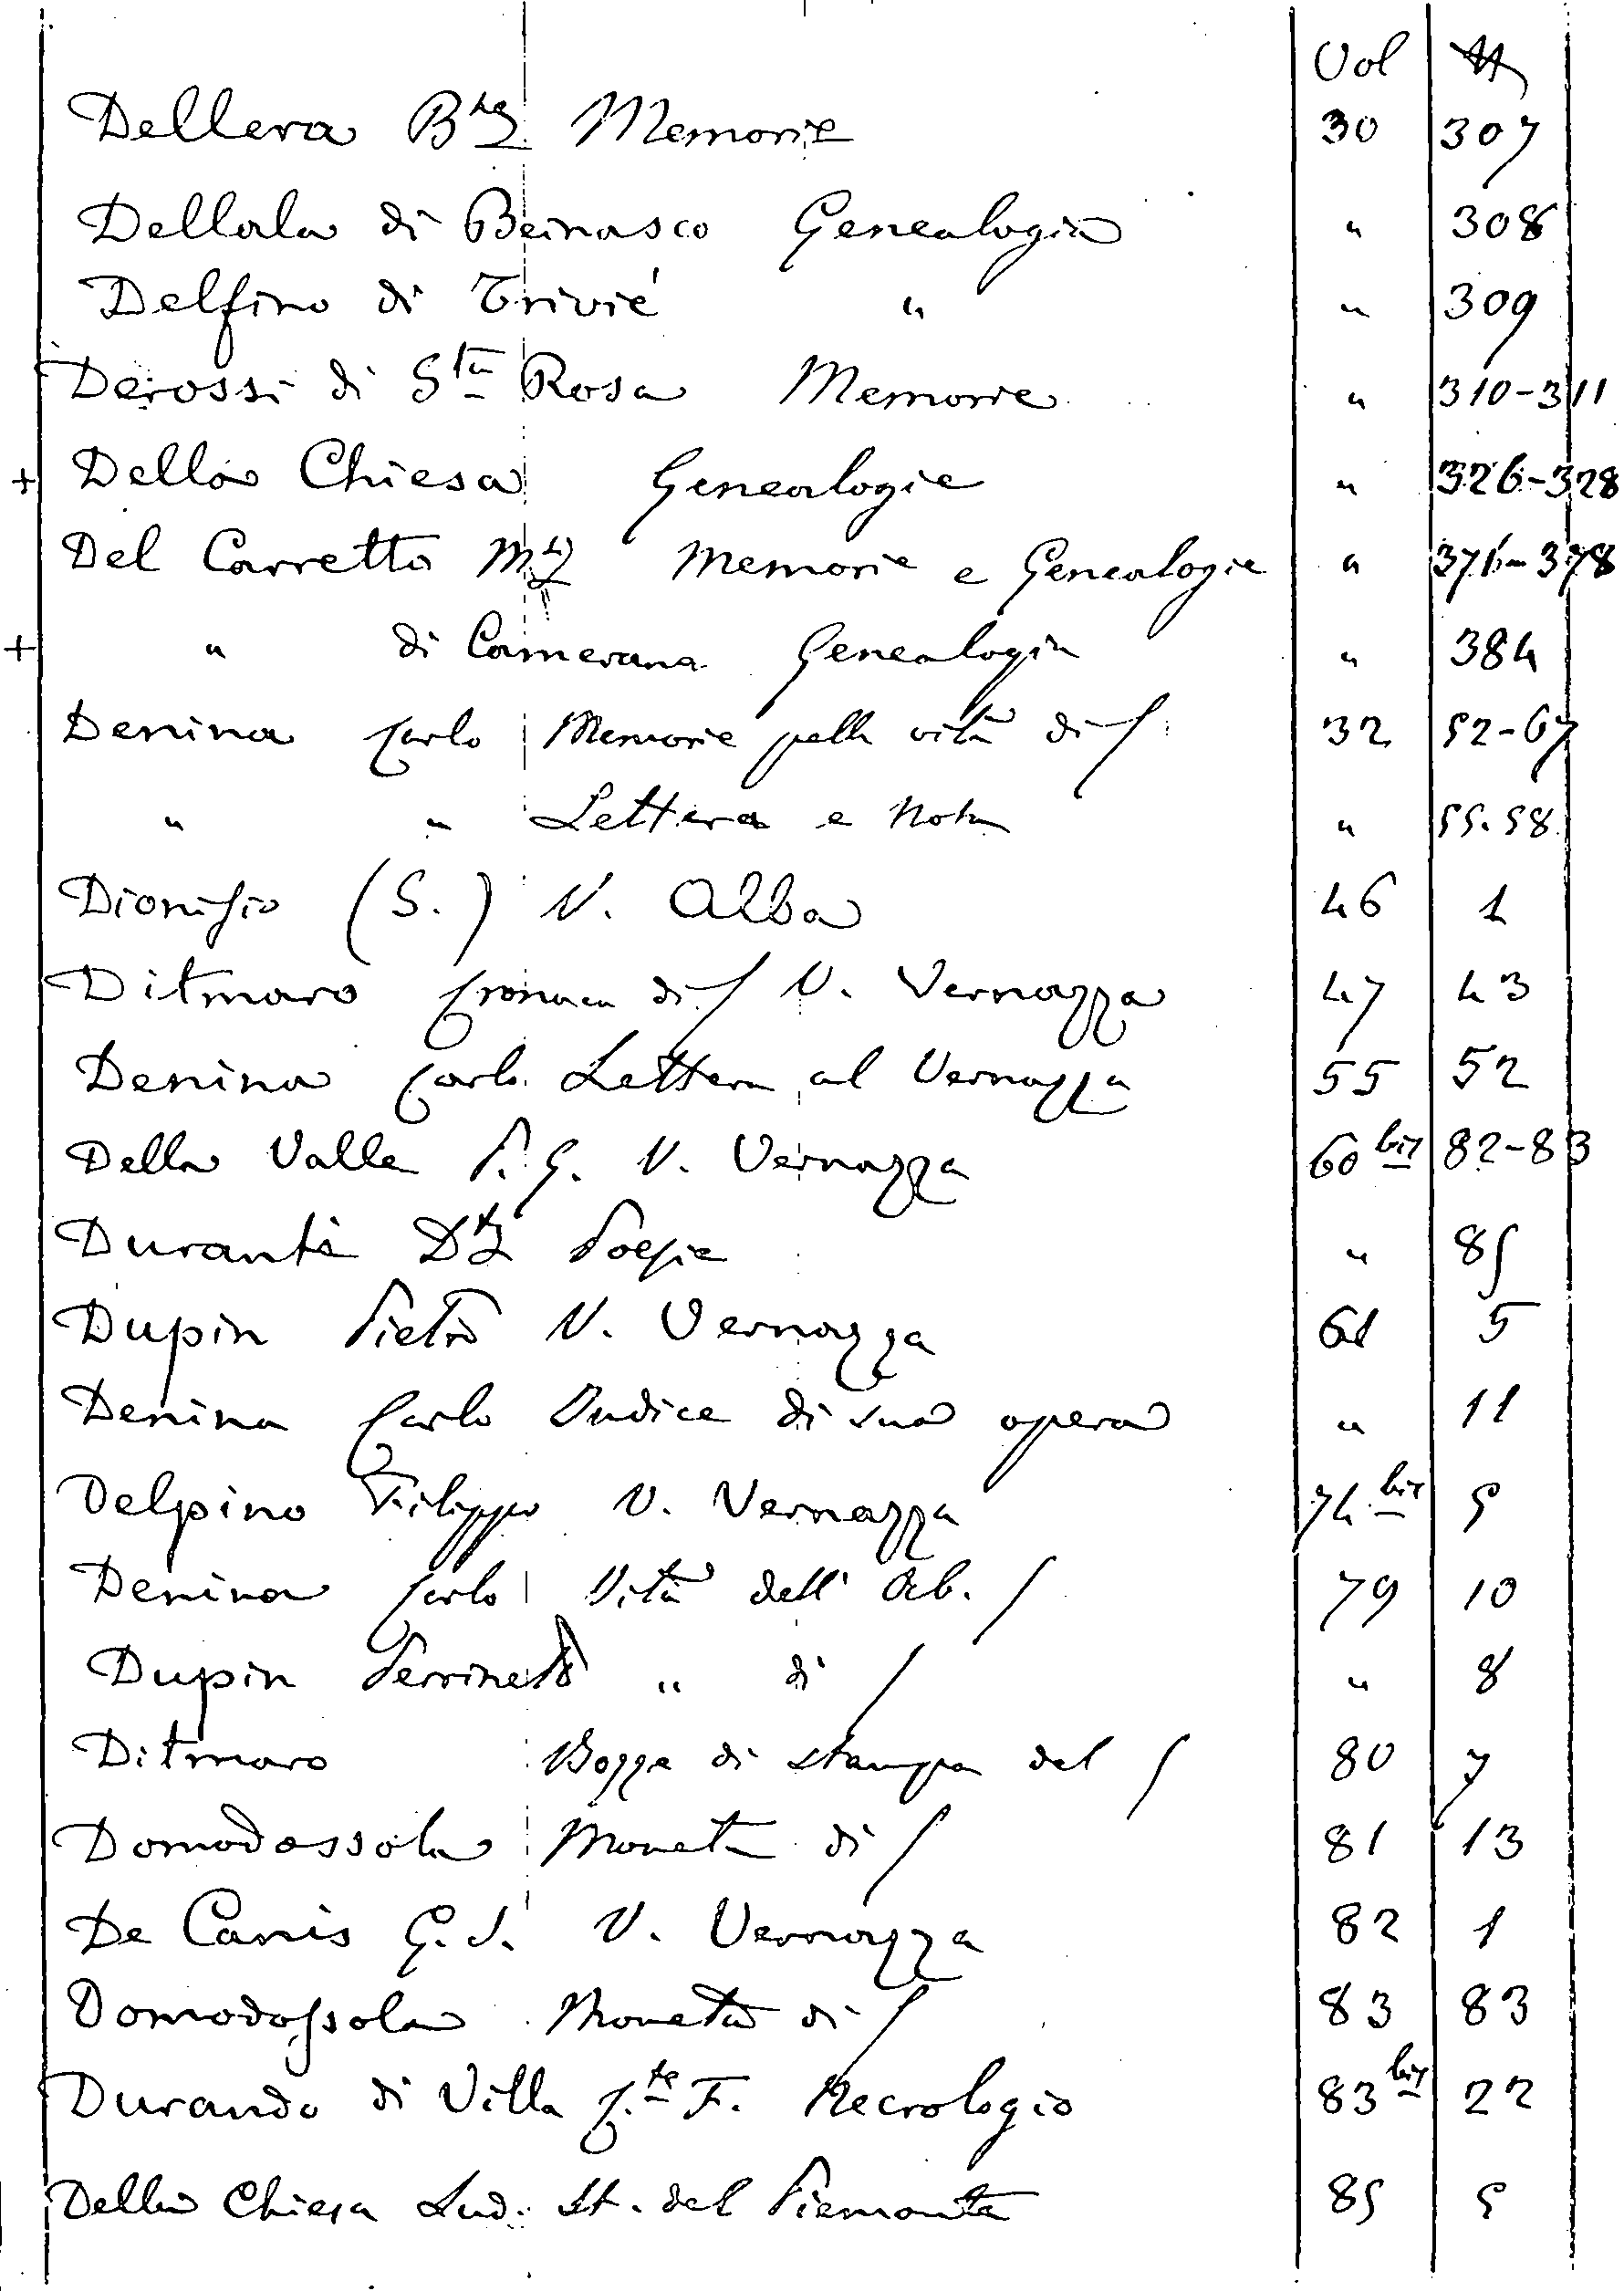 Vol N
Dellera B.ne Memorie 30 307
Dellala di Beinasco Genealogia " 308
Delfino di Trivié " " 309
Derossi di S.ta Rosa Memorie " 310-311
+ Della Chiesa Genealogie " 326-328
Del Carretto M. Memorie e Genealogie " 376-378
+ " di Camerana Genealogia " 384
Denina Carlo Memorie pella vita di / 32 52-67
" " Lettera e Nota " 55.58
Dionisio (S.) V. Alba 46 1
Ditmaro Cronaca di / V. Vernazza 47 43
Denina Carlo Lettera al Vernazza 55 52
Della Valle P. G. V. Vernazza 60 bis 82-83
Durante Poesie " 85
Dupin Pietro V. Vernazza 61 5
Denina Carlo Indice di sua opera " 11
Delpino Filippo V. Vernazza 74 bis 5
Denina Carlo Vita dell' Ab. / 79 10
Dupin Perrineto " di / " 8
Ditmaro Bozze di stampa del / 80 7
Domodossola Moneta di / 81 13
De Canis G. S. V. Vernazza 82 1
Domodossola Moneta di / 83 83
Durando di Villa C.te F. Necrologio 83 bis 22
Della Chiesa Lud. St. del Piemonte 85 5